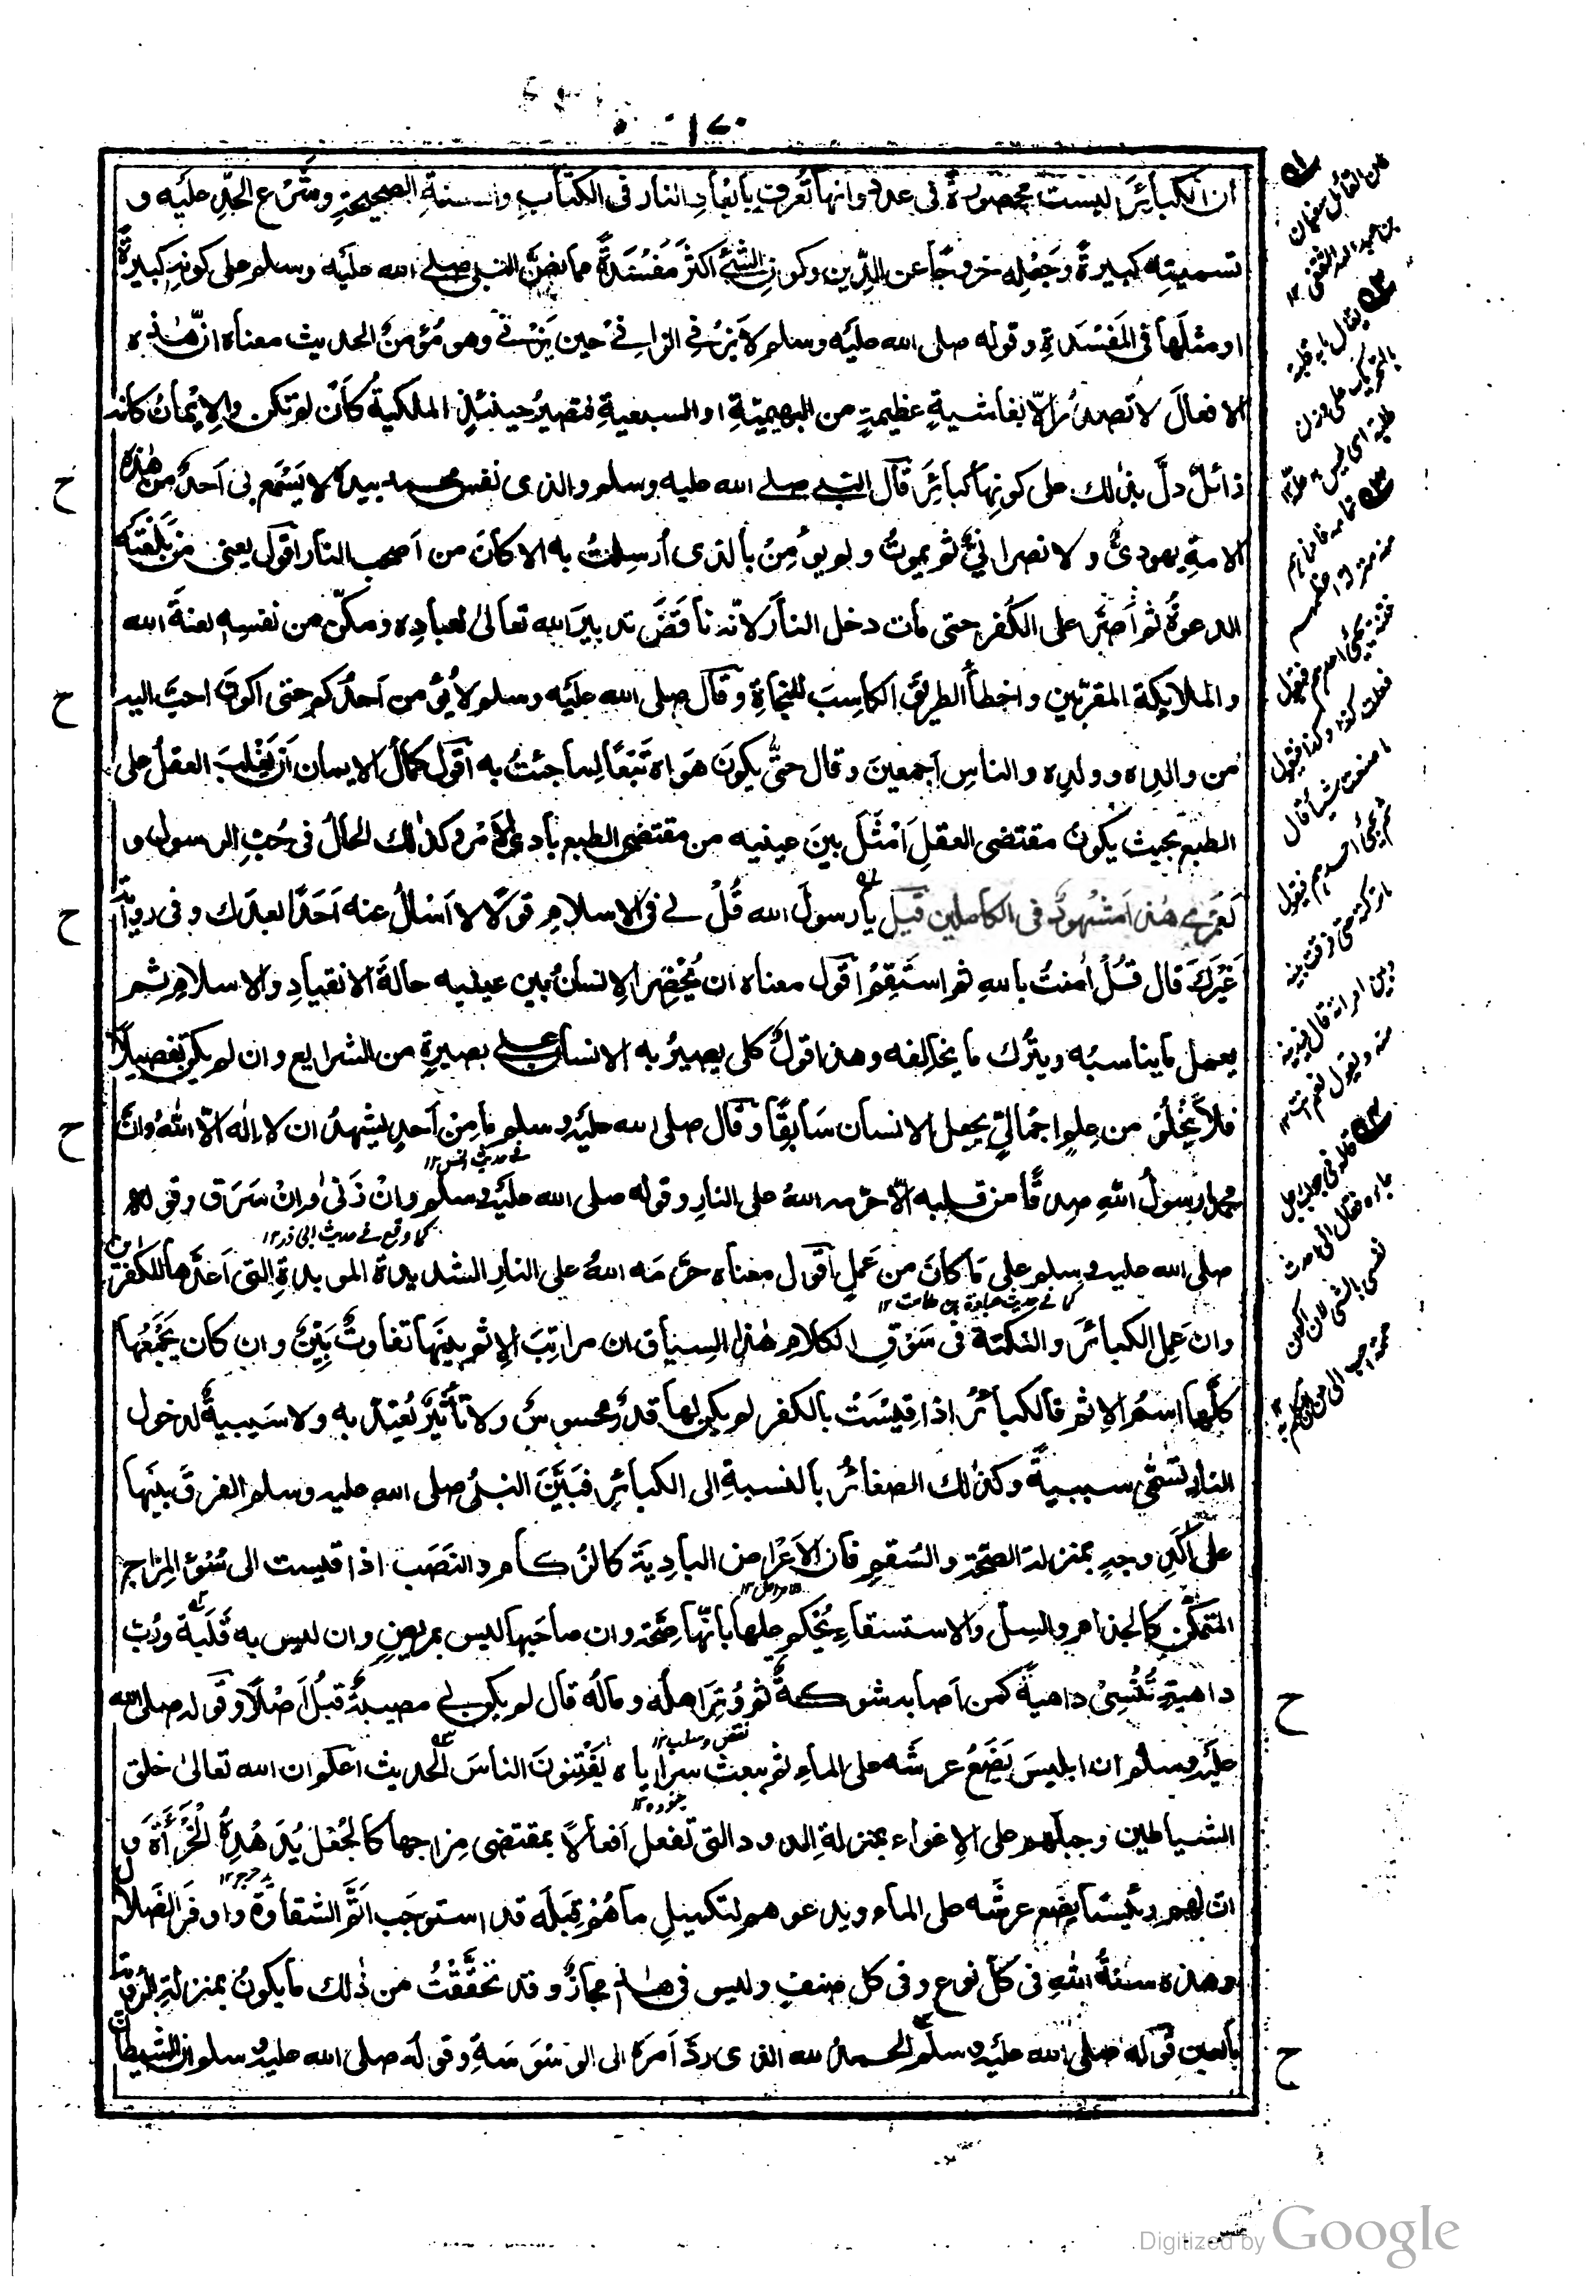 ١٧٠
ان الكبائرَ ليست محصورةً فى عدد وانها تُعرف بايعادِ النار فى الكتابِ والسنةِ الصحيحةِ وشَرْعِ الحدِّ عليه و
تسميتِه كبيرةً وجَعْلِه خروجًا عن الدِّين وكونِ الشئ اكثرَ مَفْسَدَةً مما نصَّ النبى صلے الله عليه وسلم على كونِه كبيرةً
او مثلَها فى المَفْسَدةِ وقوله صلى الله عليه وسلم لا يَزنِے الزانِے حين يَزنِے وهو مُؤمنٌ الحديث معناه انّ هٰذه
الافعالَ لا تصدرُ الّا بغاشيةٍ عظيمةٍ من البهيميّةِ او السبعيةِ فتصيرُ حينئذٍ الملكيةُ كأن لم تكن والايمانُ كانه
زائلٌ دلّ بذٰلك على كونِها كبائرَ قال النبى صلے الله عليه وسلم والذى نفس محمد بيده لا يَسْمَع بى اَحدٌ من هٰذه
الامةِ يهودىٌّ ولا نصرانىٌّ ثم يموتُ ولم يؤمِنْ بالذى اُرسِلتُ به الا كانَ من اَصحٰب النار اقول يعنى من بَلَغَتْه
الدعوةُ ثم اَصَرَّ على الكُفر حتى مات دخل النارَ لانّه ناقَضَ تدبيرَ الله تعالىٰ لعبادِه ومكّن من نفسِه لعنةَ الله
والملائكة المقرّبين واخطأ الطريقَ الكاسِبَ للنجاةِ وقال صلى الله عليه وسلم لا يُؤمن اَحدُكم حتى اكونَ احبَّ اليه
من والدِه وولدِه والناسِ اَجمعينَ وقال حتّٰى يكونَ هَواه تَبَعًا لما جئتُ به اقول كمالُ الايمان اَن يَغْلِبَ العقلُ على
الطبع بحيث يكونُ مقتضى العقلِ اَمْثَلَ بينَ عينيه من مقتضى الطبع بادىَ الاَمْر وكذٰلك الحالُ فى حُبِّ الرسولِ و
لَعَمْرِے هٰذا مَشْهُودٌ فى الكاملين قيل يا رسولَ الله قُلْ لے فى الاسلام قولًا لا اَسْالُ عنه اَحَدًا بعدَك وفى روايةٍ
غَيْرَكَ قال قُلْ اٰمنتُ باللهِ ثم استَقِمْ اقول معناه ان يُحْضِرَ الانسانُ بين عينيه حالةَ الانقيادِ والاسلامِ ثم
يعمل ما يناسبُه ويترُك ما يخالفه وهذا قولٌ كلى يصيرُ به الانسانُ علے بصيرةٍ من الشرايع وان لم يكن تفصيلًا
فلا يَخْلُو من علمٍ اجماليٍّ يجعل الانسان سَابِقًا وقال صلى الله عليه وسلم ما مِنْ اَحدٍ يشهدُ ان لا اِلٰه الّا اللهُ وانّ
فے حديث انس ١٢
محمدا رسولُ اللهِ صِدقًا من قلبه الّا حرّمه اللهُ على النارِ وقوله صلى الله عليه وسلم وانْ زَنىٰ وانْ سَرَق وقوله
كما وقع فے حديث ابى ذر ١٢
صلى الله عليه وسلم على ما كانَ من عَملٍ اقول معناه حرَّمَه اللهُ على النارِ الشديدة الموبدةِ التى اَعدَّها للكفرين
كما فے حديث عبادة بن صامت ١٢
وان عَمِل الكبائرَ والنكتة فى سَوْقِ الكلامِ هٰذا السِياق ان مراتِبَ الاِثمِ بينَها تفاوتٌ بيّنٌ وان كان يَجْمَعُها
كلَّها اسمُ الاِثم فالكبائرُ اذا قِيسَتْ بالكفر لم يكن لها قدرٌ محسوسٌ ولا تأثيرٌ يُعتدُّ به ولا سَببيةٌ لدخول
النار تُسَمّٰى سببيةً وكذٰلك الصغائرُ بالنسبةِ الى الكبائرِ فبَيَّنَ النبىُّ صلى الله عليه وسلم الفرقَ بينَها
على اٰكَدِ وجهٍ بمنزلة الصحّة والسُقمِ فان الاَعْراضَ البادِيةَ كالزُكام والنَصَبِ اذا قيست الى سُوْءِ المِزاج
المتمكّن كالجذام والسلّ والاستسقاءِ يُحْكم عليها بانّها صِحّة وان صاحبَها ليس بمريضٍ وان ليس به قَلَبةٌ ورُبَّ
داهيةٍ تُنْسِىْ داهيةً كمن اَصابه شوكةٌ ثم وُتِرَ اهلُه ومالُه قال لم يكن لے مصيبةٌ قبلُ اَصْلًا وقوله صلى الله
نقص وسلب ١٢
عليه وسلم ان ابليسَ يَضَعُ عرشَه على الماءِ ثم يبعث سراياه يَفْتِنونَ الناسَ الحديث اعلم ان الله تعالىٰ خلق
جنوده ١٢
الشياطين وجبلَهم على الاِغواء بمنزلةِ الدود التى تفعل اَفعالًا بمقتضى مِزاجها كالجُعَل يُدَهْدِهُ الخُرْأَةَ و
يدحرج ١٢
انّ لهم رئيسًا يضع عرشَه على الماء ويدعوهم لتكميلِ ما هُم قِبَلَه قد استوجَب اَتَمَّ الشقاوةِ واوفرَ الضَلال
وهٰذه سنةُ اللهِ فى كلّ نوع وفى كل صنفٍ وليس فى هٰذا مجازٌ وقد تحقَّقْتُ من ذٰلك ما يكونُ بمنزلةِ الرُؤيةِ
بالعين قوله صلى الله عليه وسلم الحمدُ لله الذى ردَّ اَمرَه الى الوَسْوَسةِ وقولُه صلى الله عليه وسلم ان الشيطانَ
ح
ح
ح
ح
ح
ح
كان القائل سفيان
بن عبد الله الثقفى ١٢
يقال ما به قلبة
بالتحريك على وزن
طلبة اى ليس به علة ١٢
تمامه فادناهم
منه منزلة اعظمهم
فتنة يجئ احدهم فيقول
فعلت كذا وكذا فيقول
ما صنعت شيأ قال
ثم يجئ احدهم فيقول
ما تركته حتى فرقت بينه
وبين امراته قال فيدنيه
منه ويقول نعم انت ١٢
جاءه فقال انى احدث
نفسى بالشئ لان اكون
حممة احب الى من ان اتكلم به ١٢
Digitized by Google